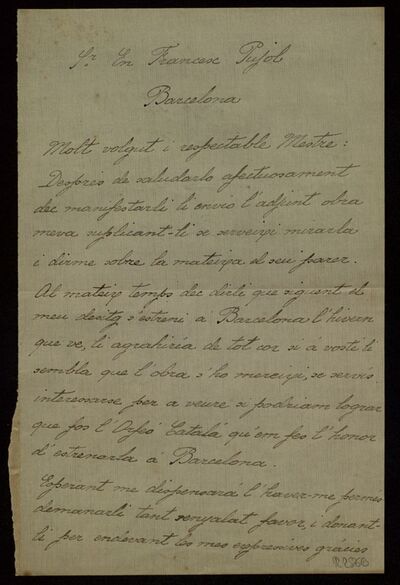 Sr. En Francesc Pujol
Barcelona
Molt volgut i respectable Mestre:
Despres de saludarlo afectuosament
dec manifestarli li envio l'adjunt obra
meva suplicant-li se serveixi mirarla
i dirme sobre la mateixa el seu parer.
Al mateix temps dec dirli que siguent el
meu desitg s'estreni á Barcelona l'hivern
que ve, li agrahiría de tot cor si á vosté li
sembla que l'obra s'ho mereixi, se servis
interessarse per a veure si podriam lograr
que fos l'Orfeó Catalá qu'em fes l'honor
d'estrenarla á Barcelona.
Esperant me dispensará l'haver-me permés
demanarli tant senyalat favor, i donant-
li per endavant les mes expresives gracies